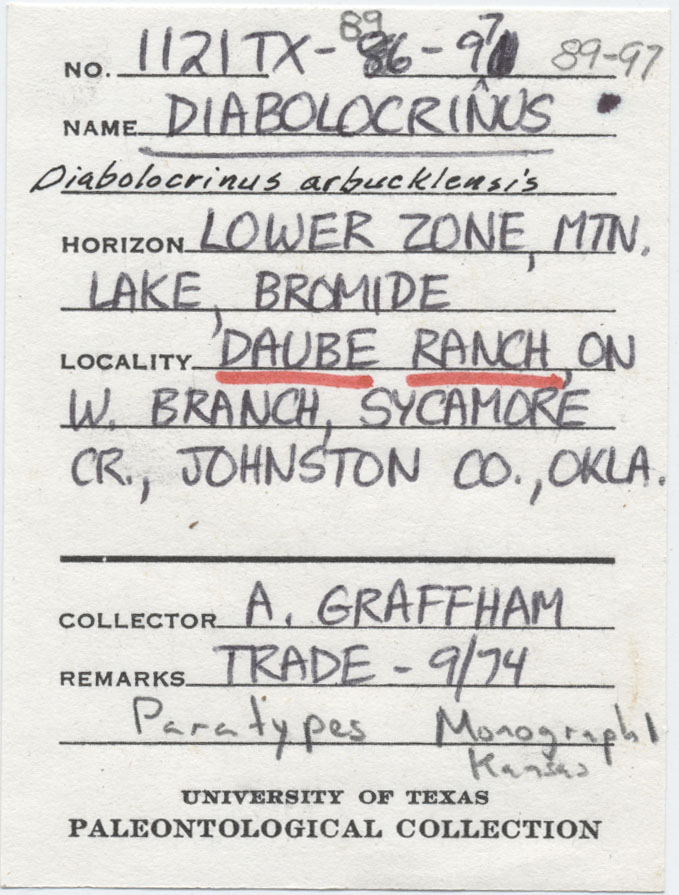 89
NO. 1121TX-86-97 89-97
NAME DIABOLOCRINUS
Diabolocrinus arbucklensis
HORIZON LOWER ZONE, MTN.
LAKE, BROMIDE
LOCALITY DAUBE RANCH, ON
W. BRANCH, SYCAMORE
CR., JOHNSTON CO., OKLA.
COLLECTOR A. GRAFFHAM
REMARKS TRADE - 9/74
Paratypes Monograph 1
Kansas
UNIVERSITY OF TEXAS
PALEONTOLOGICAL COLLECTION